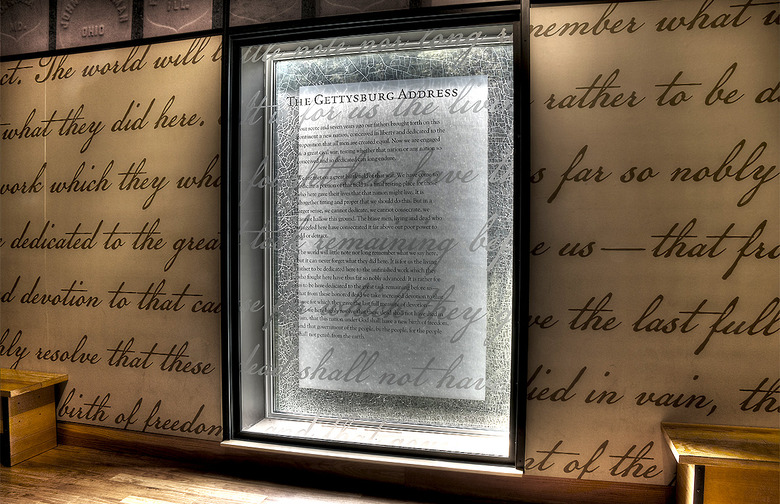 OHIO
ILL.
ct. The world will little note nor long remember what w
what they did here. It is for us the livi rather to be d
work which they who s far so nobly
dedicated to the grea task remaining be e us — that fro
d devotion to that cau they ve the last full
hly resolve that these dead shall not hav died in vain, th
birth of freedom nt of the
THE GETTYSBURG ADDRESS
Four score and seven years ago our fathers brought forth on this
continent a new nation, conceived in liberty and dedicated to the
proposition that all men are created equal. Now we are engaged
in a great civil war, testing whether that nation or any nation so
conceived and so dedicated can long endure.
We are met on a great battlefield of that war. We have come to
dedicate a portion of that field as a final resting-place for those
who here gave their lives that that nation might live. It is
altogether fitting and proper that we should do this. But in a
larger sense, we cannot dedicate, we cannot consecrate, we
cannot hallow this ground. The brave men, living and dead who
struggled here have consecrated it far above our poor power to
add or detract.
The world will little note nor long remember what we say here,
but it can never forget what they did here. It is for us the living
rather to be dedicated here to the unfinished work which they
who fought here have thus far so nobly advanced. It is rather for
us to be here dedicated to the great task remaining before us—
that from these honored dead we take increased devotion to that
cause for which they gave the last full measure of devotion—
that this nation under God shall have a new birth of freedom,
and that government of the people, by the people, for the people
shall not perish from the earth.